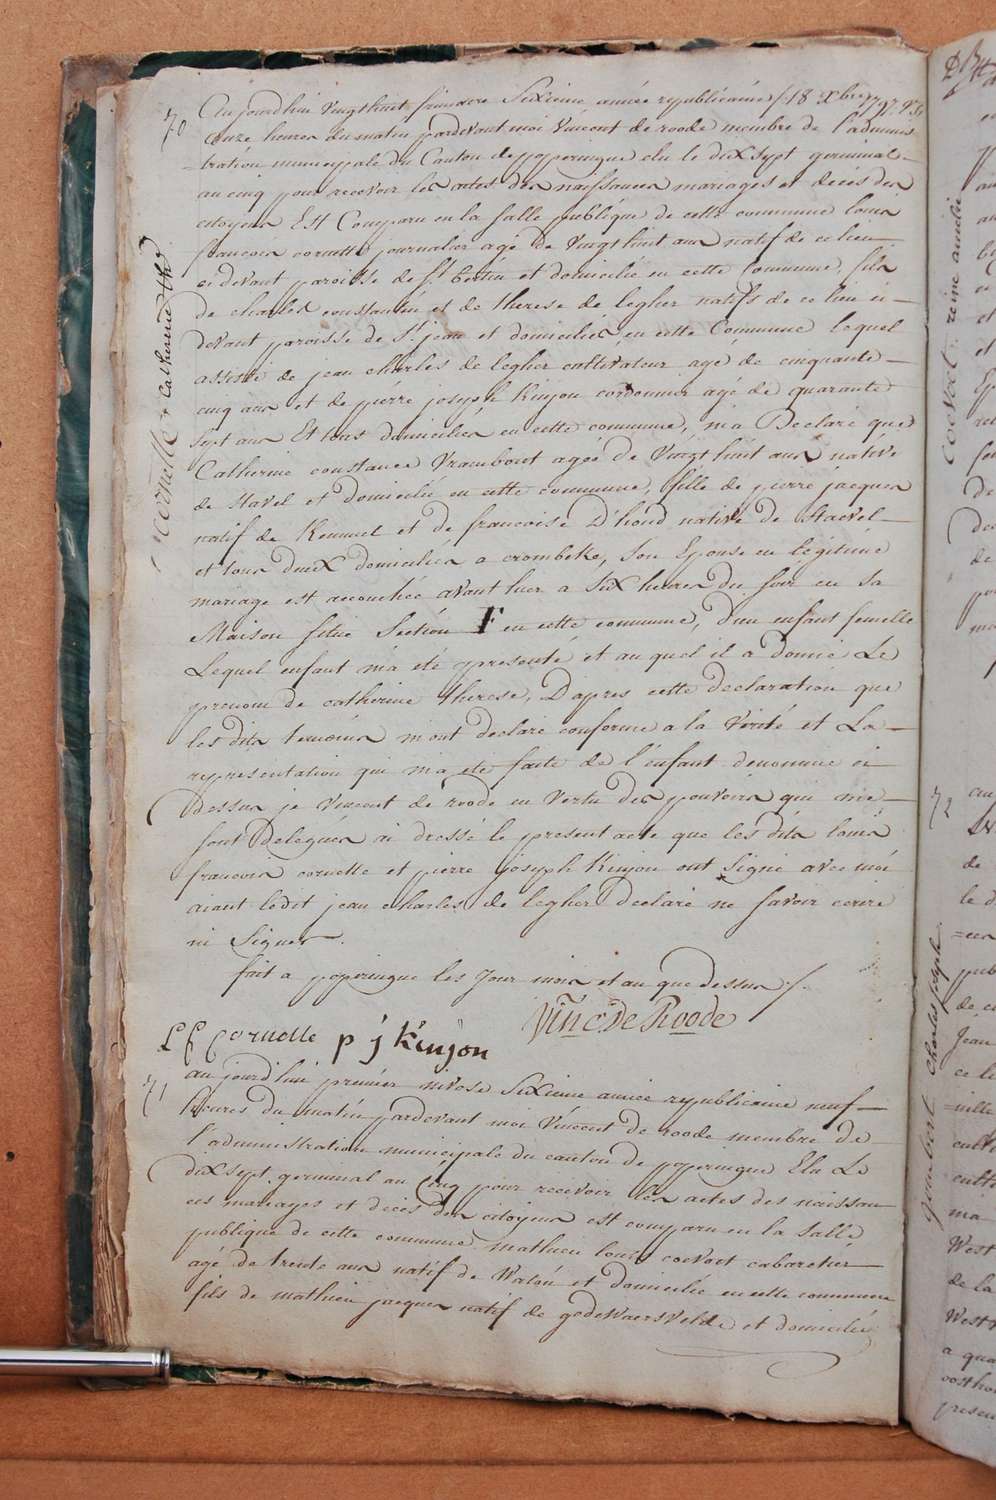 70
Aujourdhui Vingthuit frimaire Sixieme année republicaine /18 Xbre 1797 V.S/
onze heures du matin pardevant moi Vincent de roode membre de l'adminis
-tration municipale du Canton de poperingue elu le dix sept germinal
an cinq pour recevoir les actes des naissances mariages et décès des
citoyens Est Comparu en la salle publique de cette commune louis
francois cornette journalier agé de Vingthuit ans natif de ce lieu
ci devant paroisse de St. bertin et domicilié en cette Commune, fils
de charles constantin et de therese de legher natifs de ce lieu ci
devant paroisse de St. jean et domiciliés en cette Commune lequel
assisté de jean charles de legher cultivateur agé de cinquante
cinq ans et de pierre joseph Kinjon cordonnier agé de quarante
sept ans Et tous domiciliés en cette commune, m'a Declaré que
Catherine constance Vrambout agée de Vingthuit ans native
de Stavel et domicilié en cette commune, fille de pierre jacques
natif de Kemmel et de francoise D'hond native de Stavel
et tous deux domiciliés a crombeke, son Epouse en légitime
mariage est accouchée avant hier a six heures du soir en sa
Maison situé Section F en cette commune, d'un enfant femelle
Lequel enfant m'a eté presenté et auquel il a donné Le
prenom de catherine therese, D'apres cette declaration que
les dits temoins m'ont declaré conforme a la Verité et La
representation qui m'a ete faite de l'enfant denommé ci
dessus je Vincent de roode en Vertu des pouvoirs qui me
sont delegués ai dressé le present acte que les dits louis
francois cornette et pierre joseph Kinjon ont Signé avec moi
aiant ledit jean charles de legher Declaré ne savoir ecrire
ni Signer.
fait a poperingue les Jour mois et an que dessus /.
Vinc. De Roode
L f cornette p j kinjon
71
au jourd'hui premier nivose Sixieme année republicaine neuf
heures du matin pardevant moi Vincent de roode membre de
l'administration municipale du canton de poperingue Elu Le
dix sept germinal an Cinq pour recevoir les actes des naissan
ces mariages et décès des citoyens est comparu en la Salle
publique de cette commune mathieu louis coevoet cabaretier
agé de trente ans natif de Watou et domicilié en cette commune
fils de mathieu jacques natif de godewaersvelde et domicilié
cornette, Catherine the
coevoet: reine amelie
72
Joseph